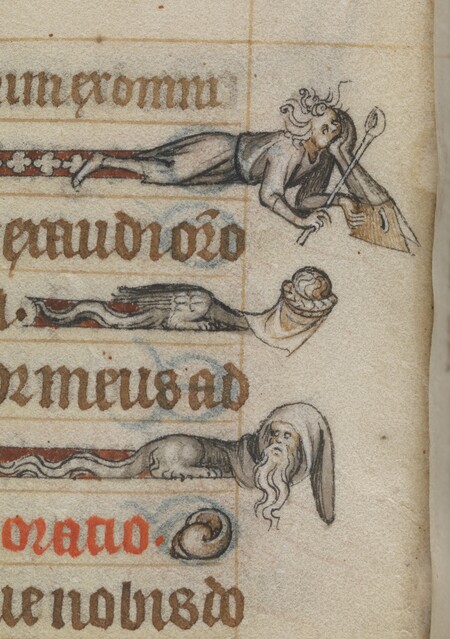 ex omni
exaudi or̄o
or meus ad
oratio.
ue nobis do